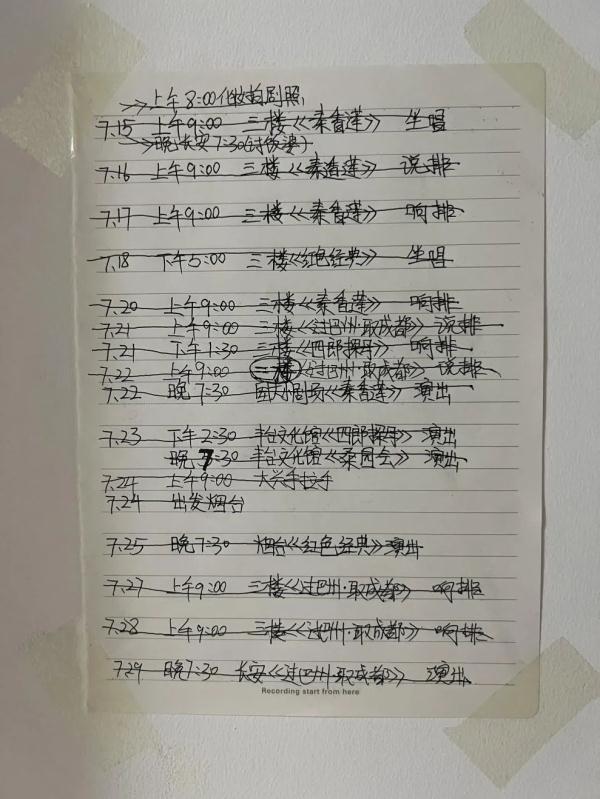 上午8:00化妆拍剧照
7.15 上午9:00 三楼《秦香莲》 坐唱
晚长安7:30
7.16 上午9:00 三楼《秦香莲》 说排
7.17 上午9:00 三楼《秦香莲》 响排
7.18 下午5:00 三楼《红色经典》 坐唱
7.20 上午9:00 三楼《秦香莲》 响排
7.21 上午9:00 三楼《过巴州·取成都》 说排
7.21 下午1:30 三楼《四郎探母》 响排
7.22 上午9:00 三楼《过巴州·取成都》 说排
7.22 晚7:30 国大小剧场《秦香莲》 演出
7.23 下午2:30 丰台文化馆《四郎探母》 演出
晚7:30 丰台文化馆《桑园会》 演出
7.24 上午9:00 大兴手拉手
7.24 出发烟台
7.25 晚7:30 烟台《红色经典》 演出
7.27 上午9:00 三楼《过巴州·取成都》 响排
7.28 上午9:00 三楼《过巴州·取成都》 响排
7.29 晚7:30 长安《过巴州·取成都》 演出
Recording start from here